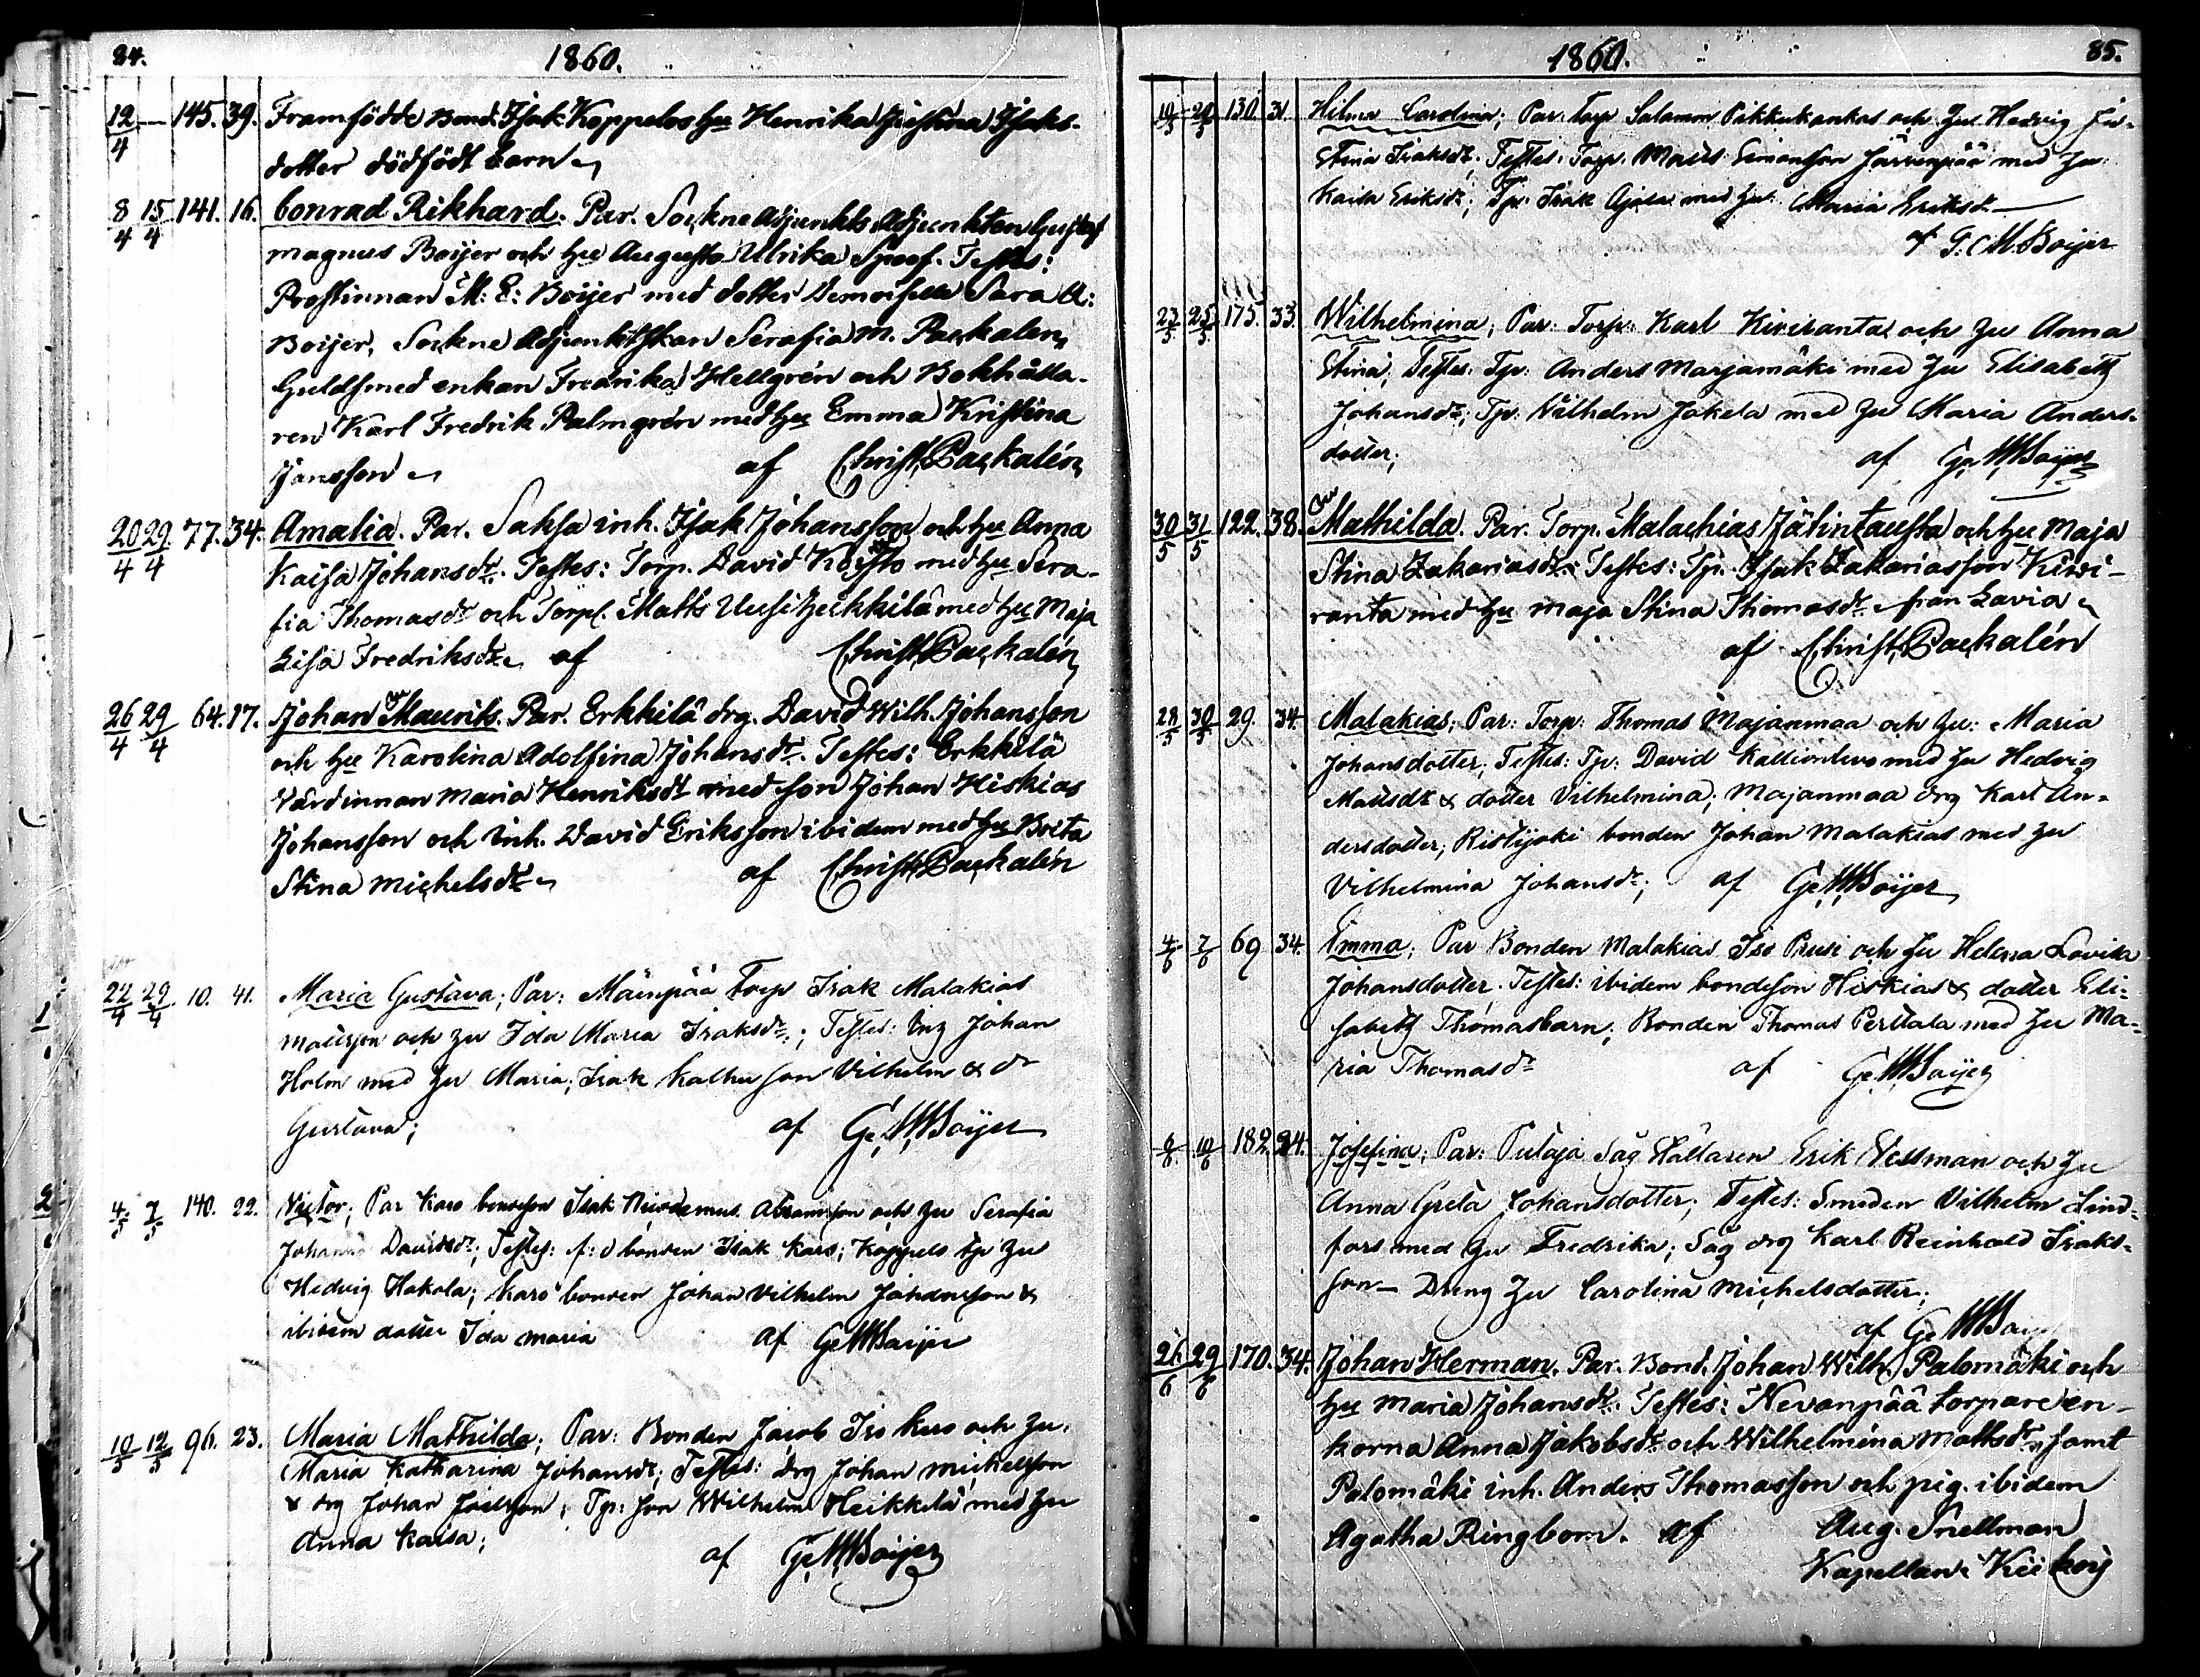 84.
1860.
12/4 — 145. 39. Framfödde Bond. Isak Koppelos hu Henrika Justina Isaks-
dotter dödfödt barn
8/4 15/4 141. 16. Conrad Rikhard. Par. Sockne Adjunkts Adjunkten Gustaf
Magnus Boijer och hu Augusta Ulrika Spoof. Testes:
Prostinnan M: E: Boijer med dotter Demoiselle Sara A:
Boijer, Sockne Adjunktskan Serafia M. Packalen,
Guldsmed enkan Fredrika Hellgrén och Bokhålla-
ren Karl Fredrik Palmgrén med hu Emma Kristina
Jansson af Christ. Packalén
20/4 29/4 77. 34. Amalia. Par. Saksa inh. Isak Johansson och hu Anna
Kaisa Johansdr. Testes: Torp. David Koisto med hu Sera-
fia Thomasdr och Torp. Matts Uusiheikkilä med hu Maja
Lisa Fredriksdr. af Christ. Packalén
26/4 29/4 64. 17. Johan Maurits. Par. Erkkilä drg. David Wilh. Johansson
och hu Karolina Adolfina Johansdr. Testes: Erkkilä
Värdinnan Maria Henriksdr med son Johan Hiskias
Johansson och inh. David Eriksson ibidem med hu Brita
Stina Michelsdr. af Christ. Packalén
22/4 29/4 10. 41. Maria Gustava; Par: Mäenpää Torp Isak Malakias
Mattsson och hu Ida Maria Isaksdr.; Testes: Johan
Holm med hu Maria; Isak son Vilhelm & dr
Gustava; af G. M. Boijer
4/5 7/5 140. 22. Victor; Par Karo bondeson Isak Nicodemus Abramsson och hu Serafia
Johanna Davidsdr; Testes: f: d bonden Isak Karo; Koppels tp hu
Hedvig Hakola; Karo bonden Johan Vilhelm Johansson &
ibidem dotter Ida Maria af G. M. Boijer
10/5 12/5 96. 23. Maria Mathilda; Par: Bonden Jacob Iso och hu.
Maria Katharina Johansdr; Testes: drg Johan Michelsson
& drg Johan Joelsson; Tp: son Wilhelm Heikkilä med hu
Anna Kaisa; af G. M. Boijer
1860.
85.
130 31 Hilma Carolina; Par. Torp Salomon Pikkukankas och hu Hedvig Ju-
stina Isaksdr; Testes: Torp. Matts Simonsson Järvenpää med hu
Kaisa Eriksdr; Tp: Isak Ajala med hu: Maria Eriksdr
af G. M. Boijer
23/5 25/5 175. 33. Wilhelmina; Par: Torp: Karl Kiviranta och hu Anna
Stina; Testes: Tp: Anders Marjamäki med hu Elisabeth
Johansdr; Tp: Vilhelm Jakela med hu Maria Anders-
dotter; af G. M. Boijer
30/5 31/5 122. 38. Mathilda. Par. Torp. Malachias Jätintausta och hu Maja
Stina Zakariasdr: Testes: Tp. Isak Zakariasson Kiwi-
ranta med hu Maja Stina Thomasdr. från Lavia
af Christ. Packalén
28/5 30/5 29. 34. Malakias; Par: Torp: Thomas Majanmaa och hu: Maria
Johansdotter; Testes: Tp: David med hu Hedvig
Mattsdr & dotter Vilhelmina; Majanmaa drg Karl An-
dersdotter; Ristijoki bonden Johan Malakias med hu
Vilhelmina Johansdr; af G. M. Boijer
4/6 7/6 69 34. Emma; Par Bonden Malakias Iso Prusi och hu Helena Lovisa
Johansdotter. Testes: ibidem bondeson Hiskias & dotter Eli-
sabeth Thomasbarn; Bonden Thomas Perttala med hu Ma-
ria Thomasdr af G. M. Boijer
10/6 182. 24. Josefina; Par: Putaja Såg Ställaren Erik Vessman och hu
Anna Greta Johansdotter; Testes: Smeden Vilhelm Lind-
fors med hu Fredrika; Såg drg Karl Reinhold Isaks-
son — Dreng hu Carolina Michelsdotter;
af G. M. Boijer
26/6 29/6 170. 34. Johan Herman. Par. Bond. Johan Wilh. Palomäki och
hu Maria Johansdr. Testes: Nevanpää torpare en-
korna Anna Jakobsdr. och Wilhelmina Mattsdr, samt
Palomäki inh. Anders Thomasson och pig. ibidem
Agatha Ringbom. af Aug. Snellman
Kapellan i